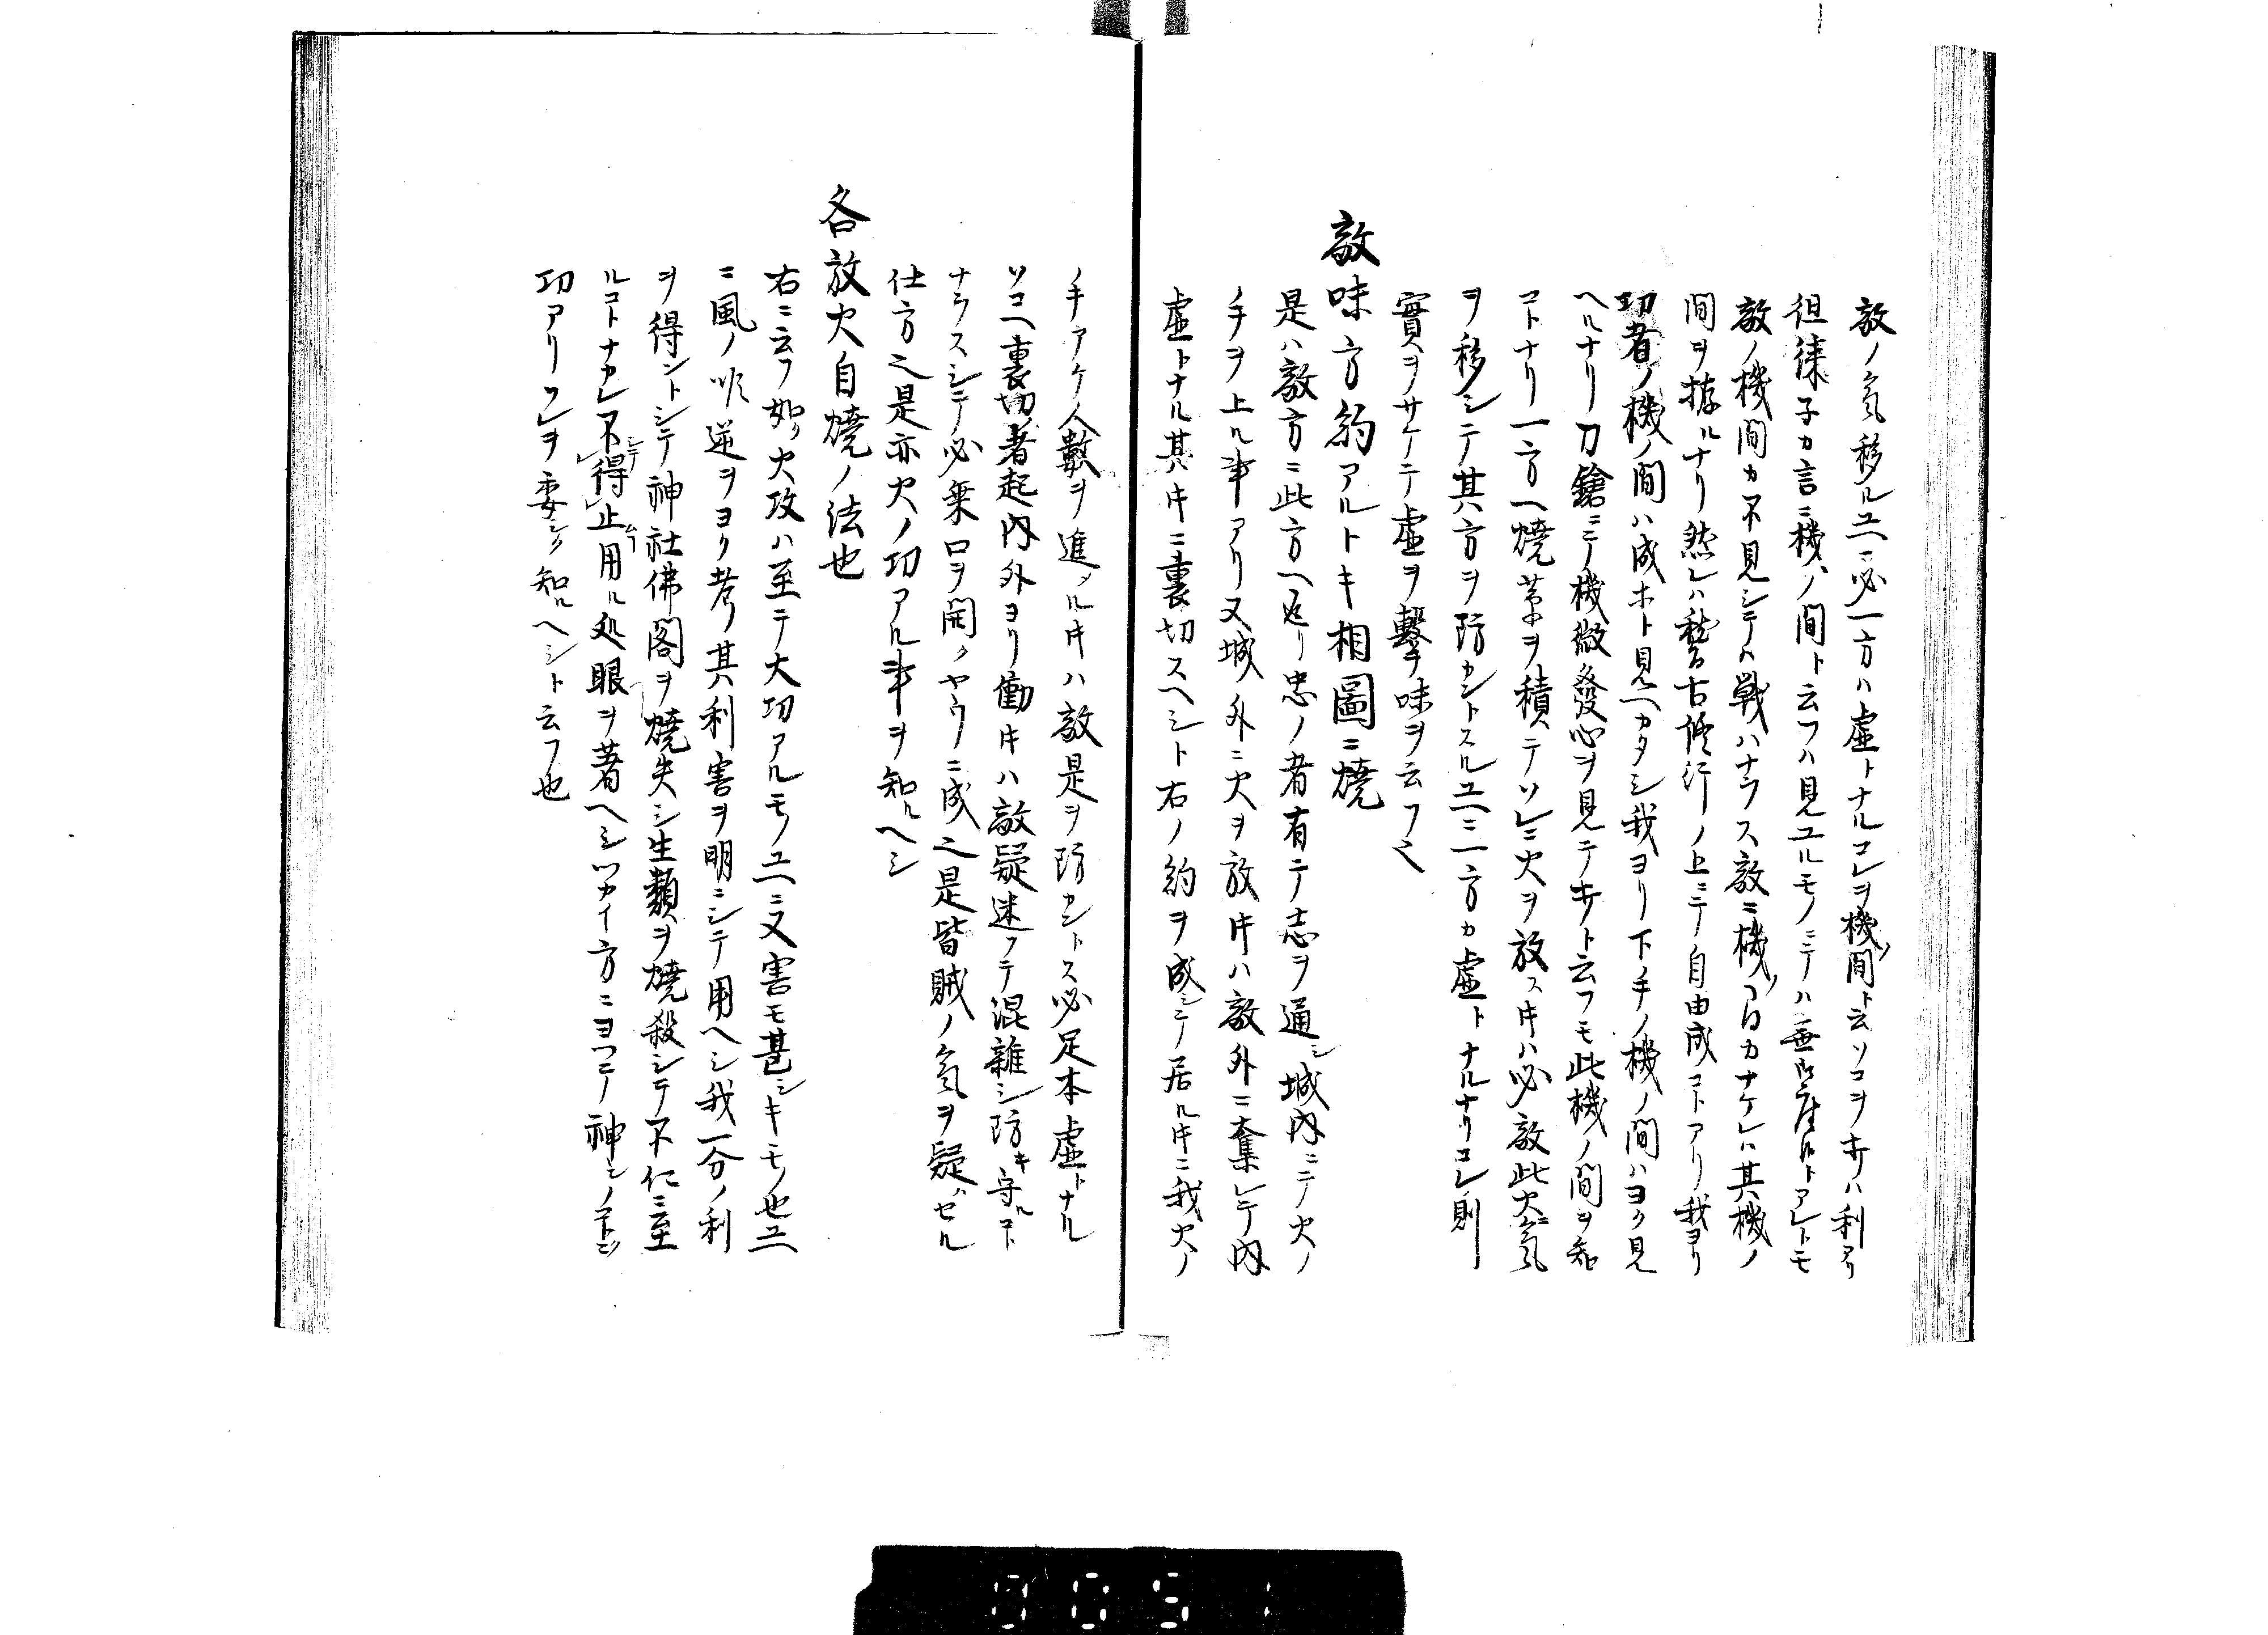 敵ノ氣移ルユヘニ必一方ハ虚トナルコレヲ機ノ間ト云ソコヲ討ハ利アリ
但徠子カ言ニ機ノ間ト云フハ見ユルモノニテハ無御座候トアレトモ
敵ノ機間カ不見シテハ戦ハナラス敵ニ機ノ間カナケレハ其機ノ
間ヲ拵ルナリ然レハ稽古修行ノ上ニテ自由成コトアリ我ヨリ
功者ノ機ノ間ハ成ホト見ヘカタシ我ヨリ下手ノ機ノ間ハヨク見
ヘルナリ刀鎗ニテ機微發心ヲ見テ討ト云フモ此機ノ間ヲ知
コトナリ一方ヘ焼草ヲ積テソレニ火ヲ放ス𪜈ハ必敵此火ニ氣
ヲ移シテ其方ヲ防カントスルユヘニ一方カ虚トナルナリコレ則
實ヲサケテ虚ヲ撃ノ味ヲ云フ也
敵味方約アルトキ相圖ニ焼
是ハ敵方ニ此方ヘ返リ忠ノ者有テ志ヲ通シ城内ニテ火ノ
手ヲ上ル事アリ又城外ニ火ヲ放時ハ敵外ニ奪レテ内
虚トナル其時ニ裏切スヘシト右ノ約ヲ成シテ居ル時ニ我火ノ
手アケ人數ヲ進メル時ハ敵是ヲ防カントス必足本虚トナル
ソコヘ裏切ノ者起内外ヨリ働時ハ敵疑迷フテ混雜シ防キ守ルコト
ナラスシテ必乗口ヲ開クヤウニ成也是皆賊ノ氣ヲ疑ハセル
仕方也是亦火ノ功アル事ヲ知ルヘシ
各放火自焼ノ法也
右ニ云フ如ク火攻ハ至テ大切アルモノユヘニ又害モ甚シキモノ也ユヘ
ニ風ノ順逆ヲヨク考ヘ其利害ヲ明ニシテ用ヘシ我一分ノ利
ヲ得ントシテ神社佛閣ヲ焼失シ生類ヲ焼殺シテ不仁ニ至
ルコトナカレ不シテ得止ムヿ用ル処眼ヲ著ヘシツカイ方ニヨツテノ神シノコトシ
功アリコレヲ委シク知ルヘシト云フ也